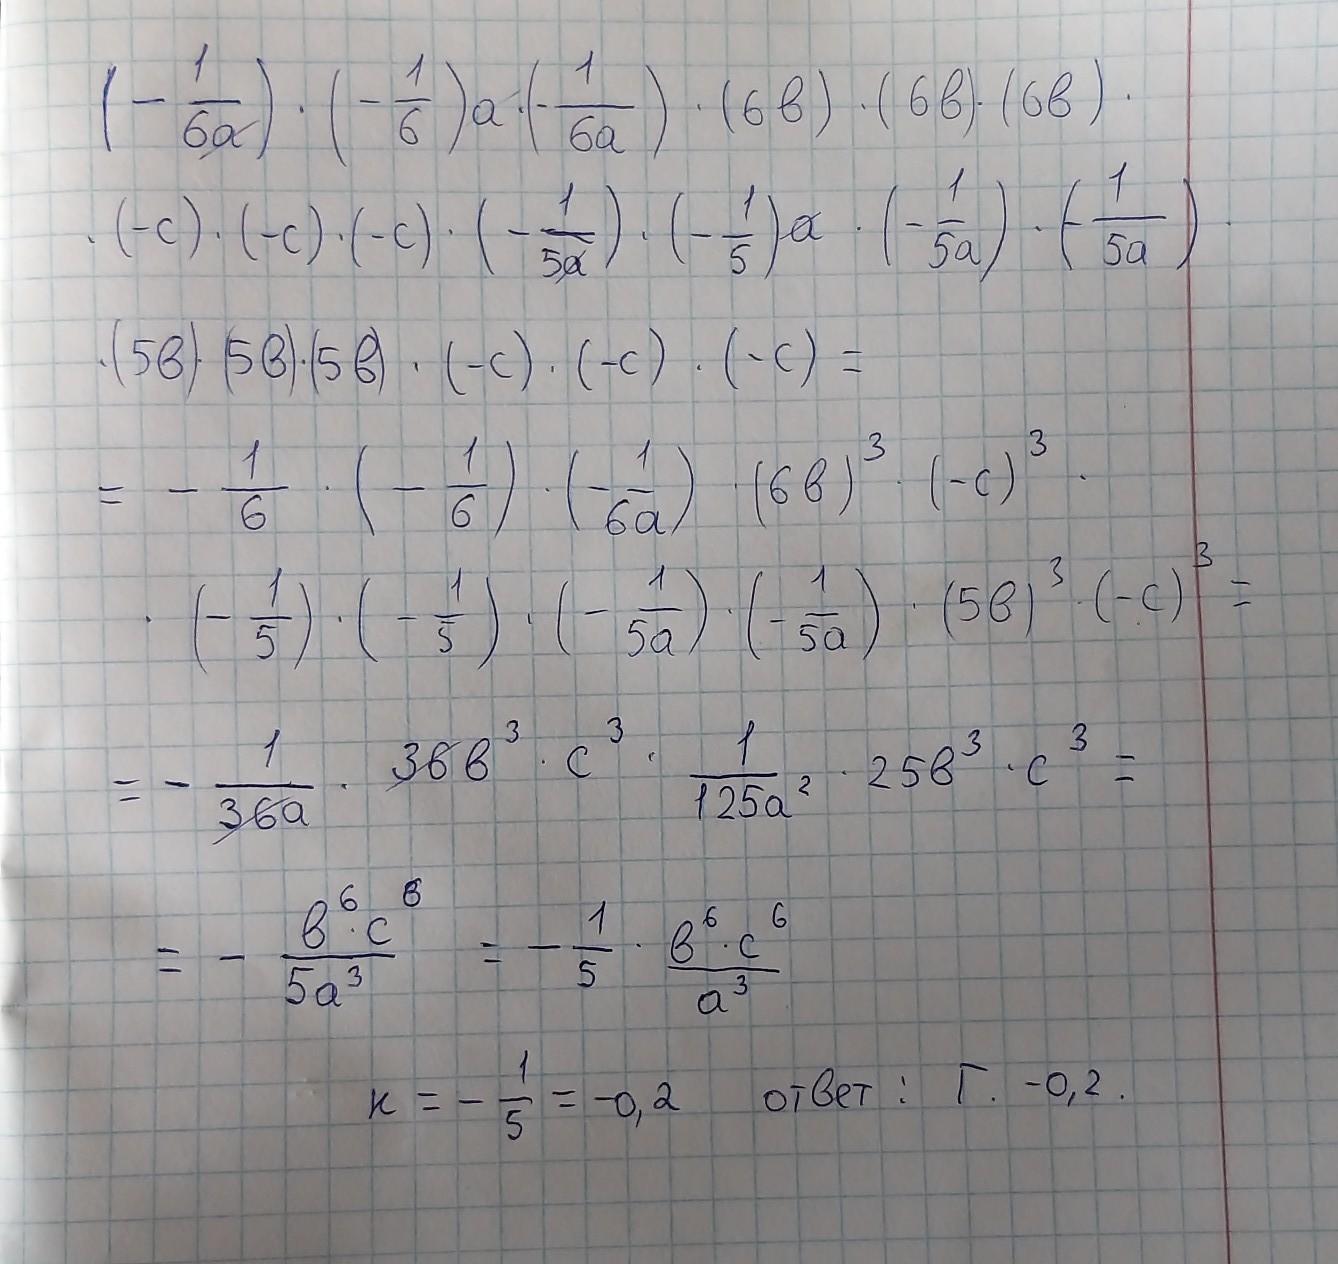 (- 1/6a) · (- 1/6)a · (- 1/6a) · (6в) · (6в) · (6в) ·
· (-c) · (-c) · (-c) · (- 1/5a) · (- 1/5)a · (- 1/5a) · (- 1/5a) ·
· (5в) · (5в) · (5в) · (-c) · (-c) · (-c) =
= - 1/6 · (- 1/6) · (- 1/6a) · (6в)³ · (-c)³ ·
· (- 1/5) · (- 1/5) · (- 1/5a) · (- 1/5a) · (5в)³ · (-c)³ =
= - 1/36a · 36в³ · c³ · 1/125a² · 25в³ · c³ =
= - в⁶·c⁶/5a³ = - 1/5 · в⁶·c⁶/a³
к = - 1/5 = -0,2 ответ : Г. -0,2.